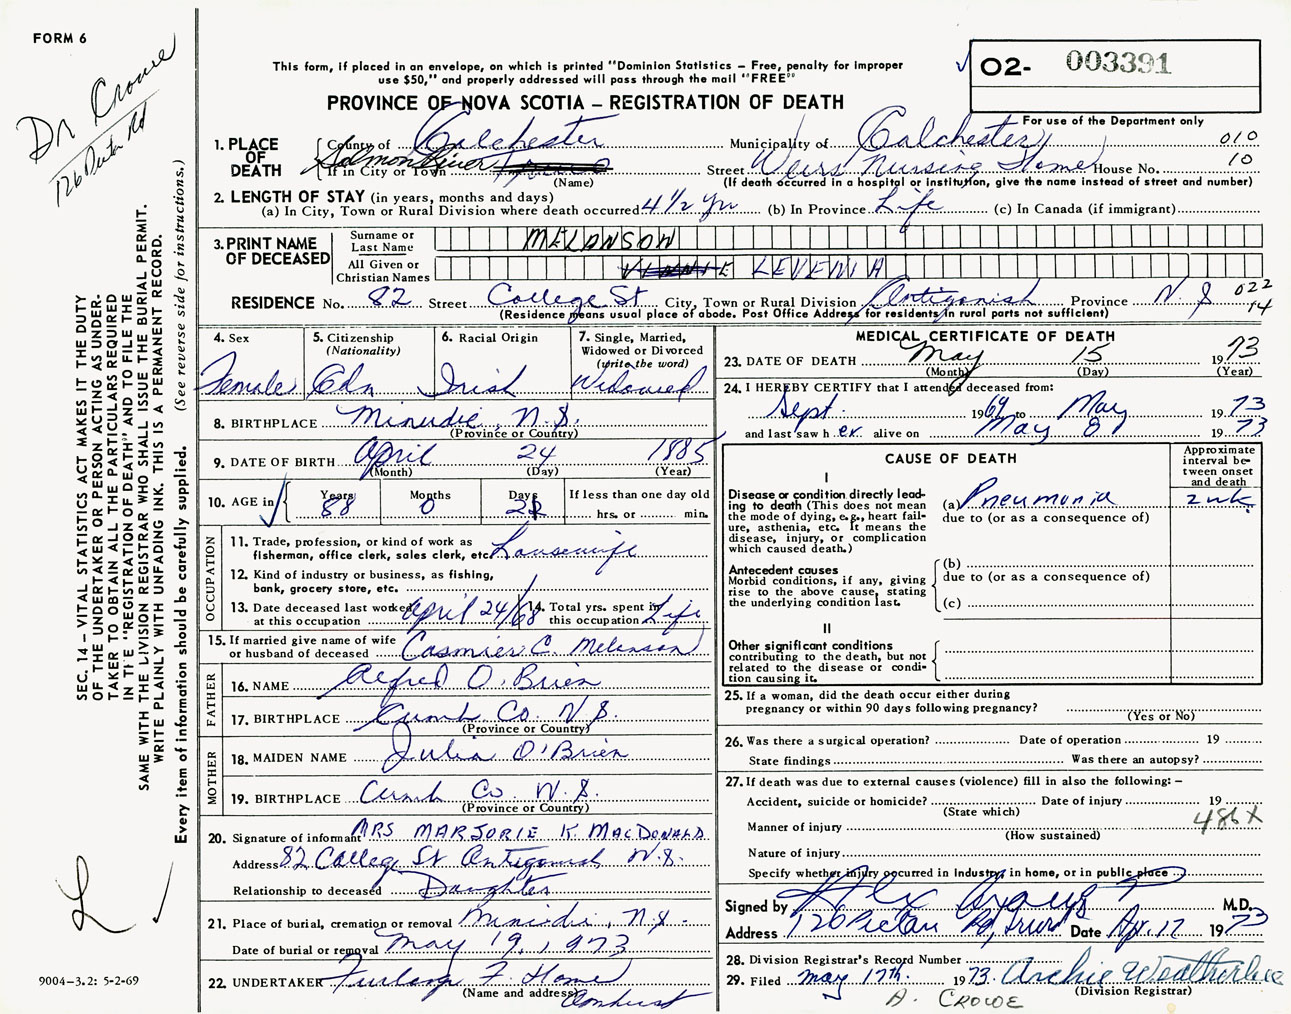 FORM 6
Dr Crowe
This form, if placed in an envelope, on which is printed "Dominion Statistics – Free, penalty for improper
use $50," and properly addressed will pass through the mail "FREE"
PROVINCE OF NOVA SCOTIA – REGISTRATION OF DEATH
O2- 003391
For use of the Department only
010
10
1. PLACE OF DEATH
County of Colchester Municipality of Colchester
If in City or Town Salmon River Street Weirs Nursing Home House No.
(Name) (If death occurred in a hospital or institution, give the name instead of street and number)
2. LENGTH OF STAY (in years, months and days)
(a) In City, Town or Rural Division where death occurred 4 1/2 yrs (b) In Province Life (c) In Canada (if immigrant)
3. PRINT NAME OF DECEASED
Surname or Last Name MELANSON
All Given or Christian Names LEVENIA
RESIDENCE No. 82 Street College St City, Town or Rural Division Antigonish Province N.S 022
14
(Residence means usual place of abode. Post Office Address for residents in rural parts not sufficient)
4. Sex 5. Citizenship (Nationality) 6. Racial Origin 7. Single, Married, Widowed or Divorced (write the word)
Female Cdn Irish Widowed
8. BIRTHPLACE Minudie, N.S.
(Province or Country)
9. DATE OF BIRTH April 24 1885
(Month) (Day) (Year)
10. AGE in Years Months Days If less than one day old
88 0 hrs. or min.
OCCUPATION
11. Trade, profession, or kind of work as
fisherman, office clerk, sales clerk, etc. Housewife
12. Kind of industry or business, as fishing,
bank, grocery store, etc.
13. Date deceased last worked at this occupation April 24/68 14. Total yrs. spent in this occupation Life
15. If married give name of wife
or husband of deceased Casmier C. Melanson
FATHER
16. NAME Alfred O'Brien
17. BIRTHPLACE Cumb Co. N.S.
(Province or Country)
MOTHER
18. MAIDEN NAME Julia O'Brien
19. BIRTHPLACE Cumb Co. N.S.
(Province or Country)
20. Signature of informant MRS MARJORIE K. MACDONALD
Address 82 College St Antigonish, N.S.
Relationship to deceased Daughter
21. Place of burial, cremation or removal Minudie, N.S.
Date of burial or removal May 19, 1973
22. UNDERTAKER Furlong F. Home
(Name and address) Amherst
MEDICAL CERTIFICATE OF DEATH
23. DATE OF DEATH May 15 1973
(Month) (Day) (Year)
24. I HEREBY CERTIFY that I attended deceased from:
Sept. 1969 to May 1973
and last saw h er alive on May 8 1973
CAUSE OF DEATH
Approximate interval between onset and death
I
Disease or condition directly leading to death (This does not
the mode of dying, e.g., heart failure, asthenia, etc. It means the
disease, injury, or complication
which caused death.)
(a) Pneumonia 2 wk.
due to (or as a consequence of)
Antecedent causes
Morbid conditions, if any, giving
rise to the above cause, stating
the underlying condition last.
(b)
due to (or as a consequence of)
(c)
II
Other significant conditions
contributing to the death, but not
related to the disease or condition causing it.
25. If a woman, did the death occur either during
pregnancy or within 90 days following pregnancy?
(Yes or No)
26. Was there a surgical operation? Date of operation 19
State findings Was there an autopsy?
27. If death was due to external causes (violence) fill in also the following: –
Accident, suicide or homicide? Date of injury 19
(State which)
486X
Manner of injury
(How sustained)
Nature of injury
Specify whether injury occurred in Industry, in home, or in public place
Signed by M.D.
Address Truro Date Apr. 17 1973
28. Division Registrar's Record Number
29. Filed May 17th. 1973. Archie Weatherbee
(Division Registrar)
A. CROWE
SEC. 14 – VITAL STATISTICS ACT MAKES IT THE DUTY
OF THE UNDERTAKER OR PERSON ACTING AS UNDERTAKER TO OBTAIN ALL THE PARTICULARS REQUIRED
IN THE "REGISTRATION OF DEATH" AND TO FILE THE
SAME WITH THE DIVISION REGISTRAR WHO SHALL ISSUE THE BURIAL PERMIT.
WRITE PLAINLY WITH UNFADING INK. THIS IS A PERMANENT RECORD.
Every item of information should be carefully supplied. (See reverse side for instructions.)
9004–3.2: 5-2-69